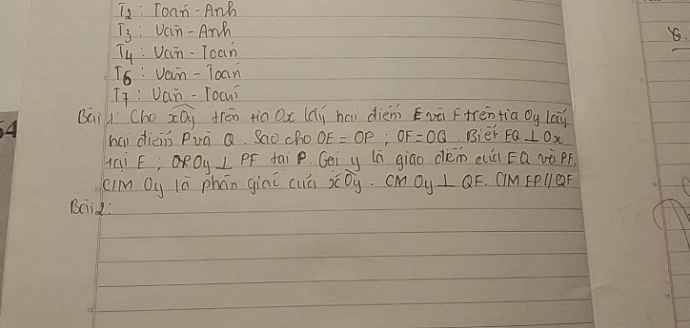 T2 : Toán - Anh
T3 : Văn - Anh
T4 : Văn - Toán
T6 : Văn - Toán
T7 : Văn - Toán
Bài 1: Cho xOy trên tia Ox lấy hai điểm E và F trên tia Oy lấy
hai điểm P và Q. Sao cho OE = OP ; OF = OQ. Biết EQ ⊥ Ox
tại E ; Oy ⊥ PF tại P. Gọi y là giao điểm của EQ và PF.
C/M Oy là phân giác của xOy. CM Oy ⊥ QF. C/M EP // QF
Bài 2:
54
8.